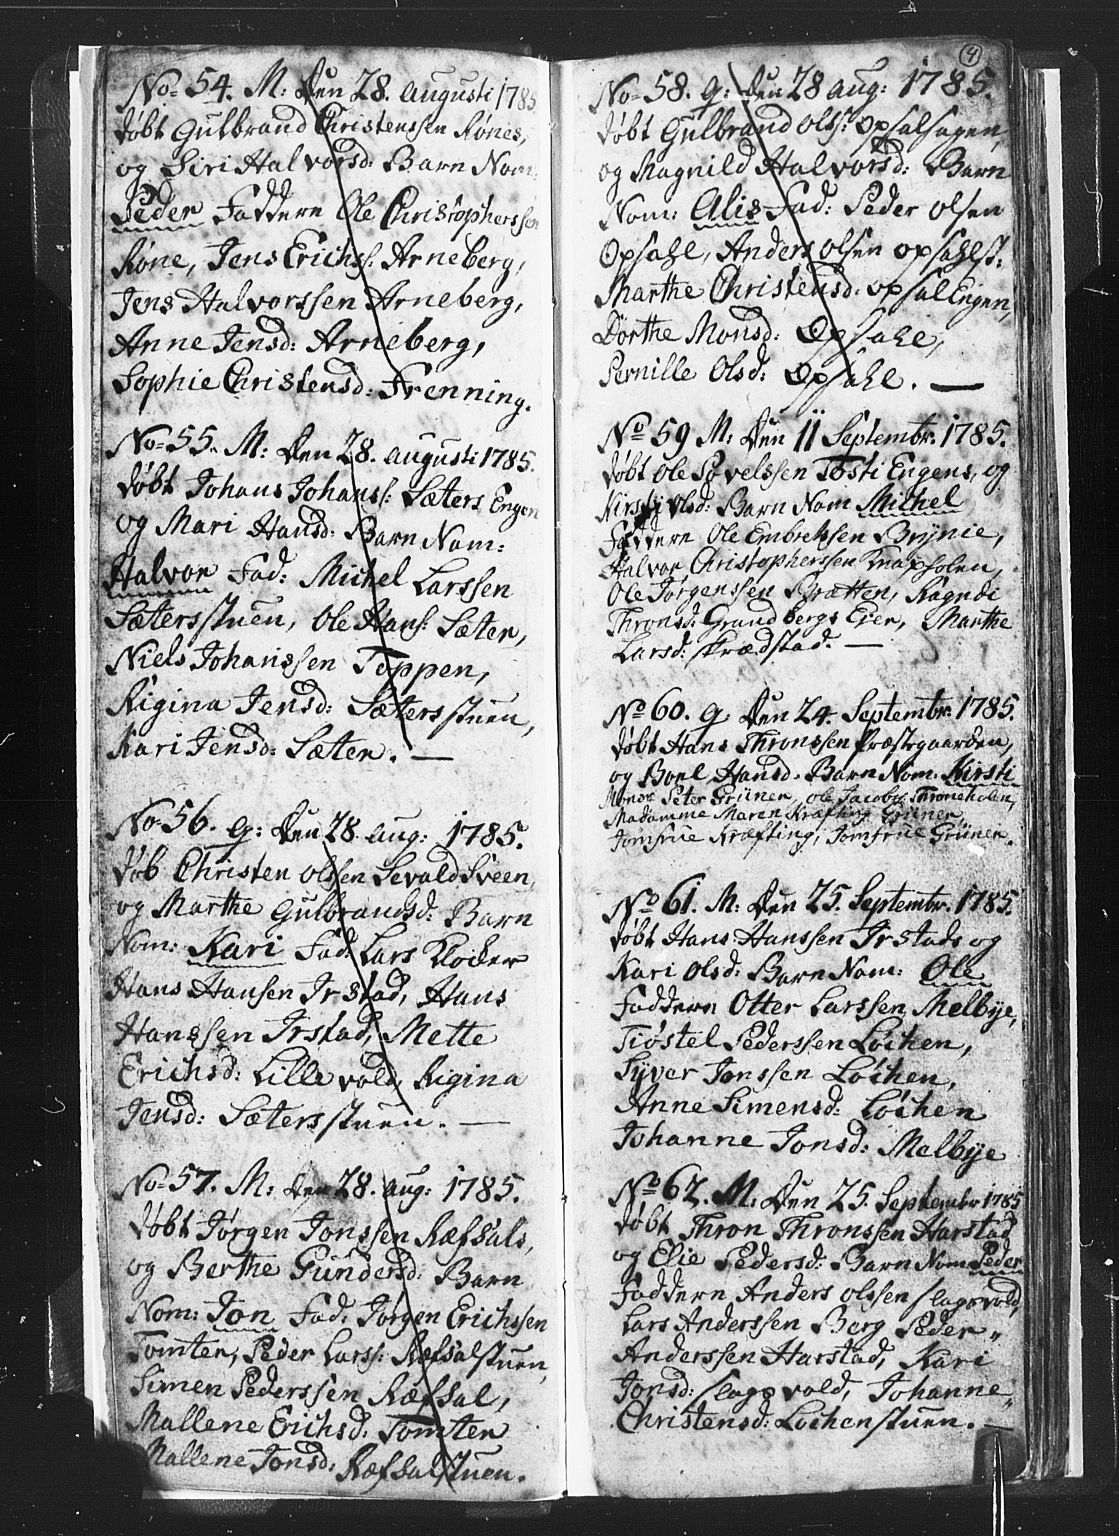 No= 54. M: Den 28. Augusti 1785
døbt Gulbrand Christenssen Rønes,
og Siri Halvorsd: Barn Nom:
Peder Faddere Ole Christopherssen
Røne, Jens Erichs: Arneberg,
Jens Halvorssen Arneberg,
Anne Jensd: Arneberg,
Sophie Christensd: Frenning.
No= 55. M: Den 28. Augusti 1785.
døbt Johans Johans: Sæters Engen
og Mari Hansd: Barn Nom:
Halvor Fad: Michel Larssen
Sætersstuen, Ole Hans: Sæter,
Niels Johanssen Toppen,
Rigina Jensd: Sætersstuen,
Kari Jensd: Sæter. —
No= 56. g: Den 28. Aug: 1785.
døb Christen Olssen Sevald Sveen,
og Marthe Gulbrandsd: Barn
Nom: Kari Fad: Lars Klocker
Hans Hansen Irstad, Hans
Hanssen Irstad, Mette
Erichsd: Lillevold, Rigina
Jensd: Sætersstuen. —
No= 57. M: Den 28. Aug: 1785.
døbt Jørgen Jonssen Ræfsals,
og Berthe Gundersd: Barn
Nom: Jon Fad: Jørgen Erichssen
Tomter, Peder Larss: Ræfsalstuen,
Simen Pederssen Ræfsal,
Mallene Erichsd: Tomter
Mallene Jonsd: Ræfsalstuen.
4
No= 58. g: Den 28 Aug: 1785.
døbt Gulbrand Ols: Opsalsagen,
og Magnild Halvorsd: Barn
Nom: Alis Fad: Peder Olsen
Opsahl, Anders Olsen Opsahlst:
Marthe Christensd: Opsal Eigen,
Dorthe Monsd: Opsahl,
Pernille Olsd: Opsahl. —
No 59 M: Den 11 Septembr: 1785.
døbt Ole Povelssen Tosti Engens, og
Kirsti Olsd: Barn Nom Michel
Faddere Ole Embrehsen Brynie,
Halvor Christopherssen Knapholen,
Ole Jørgenssen Bratten, Ragndi
Thronsd: Grandbergs Eier, Marthe
Larsd: Skrædstad. —
No 60. g Den 24. Septembr: 1785.
døbt Hans Thronssen Præstegaarden,
og Boel Hansd: Barn Nom: Kirsti
Mons: Peter Grüner, Ole Jacobs: Throneholen,
Madamme Maren Kræfting Grüner,
Jomfrue Kræfting, Jomfrue Grüner.
No 61. M: Den 25. Septembr: 1785.
døbt Hans Hanssen Irstads og
Kari Olsd: Barn Nom: Ole
Faddere Otter Larssen Melbye,
Tiøstel Pederssen Løchen,
Syver Jonssen Løchen,
Anne Simensd: Løchen
Johanne Jonsd: Melbye
No 62. M: Den 25. Septembr 1785
døbt Thron Thronssen Harstad
og Elie Pedersd: Barn Nom Peder
Faddern Anders Olssen Slagsvold,
Lars Anderssen Berg Peder
Anderssen Harstad, Kari
Jonsd: Slagsvold, Johanne
Christensd: Lochenstuen. —